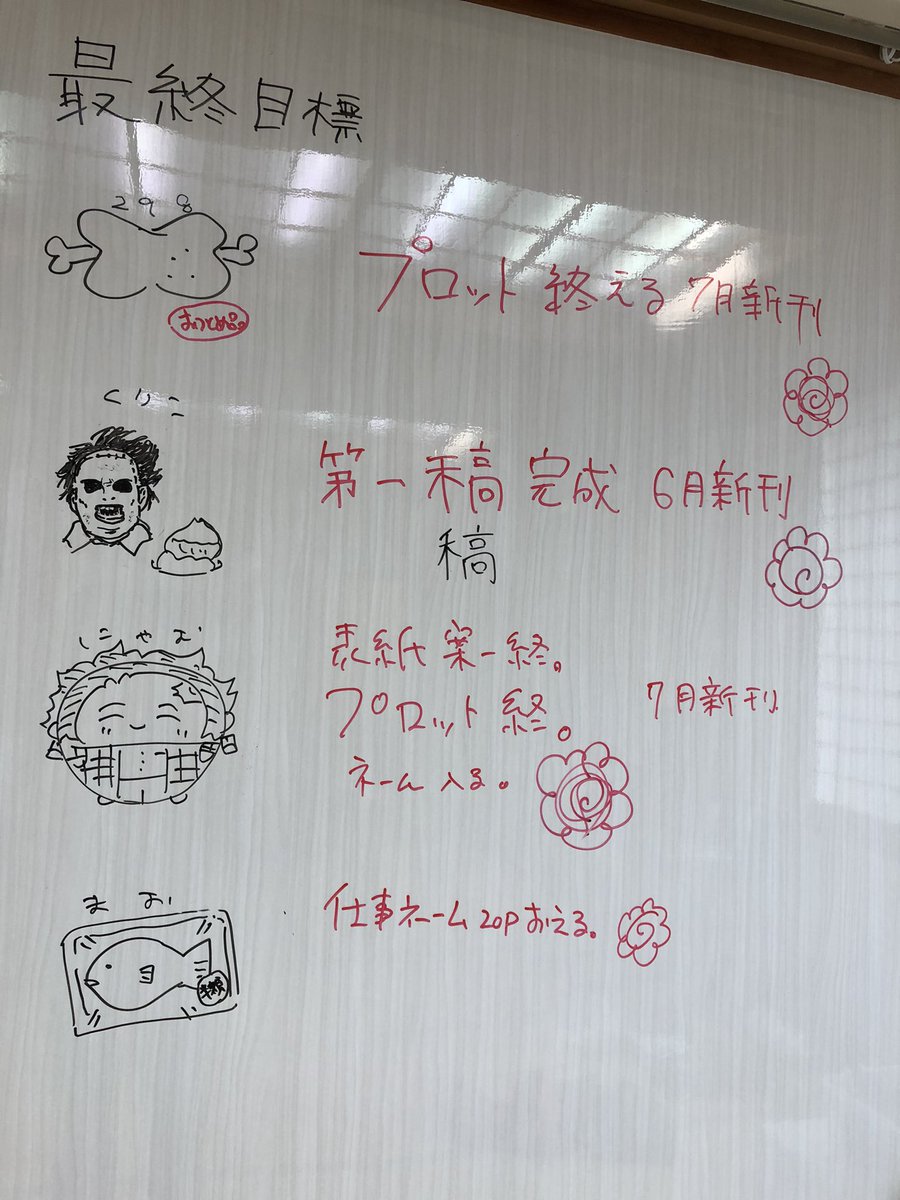 最終目標
298
おつとめ品
プロット終える 7月新刊
くりこ
第一稿完成 6月新刊
稿
にゃむ
表紙案一終。
プロット終。
7月新刊
ネーム入る。
まお
仕事ネーム20pおえる。
半額